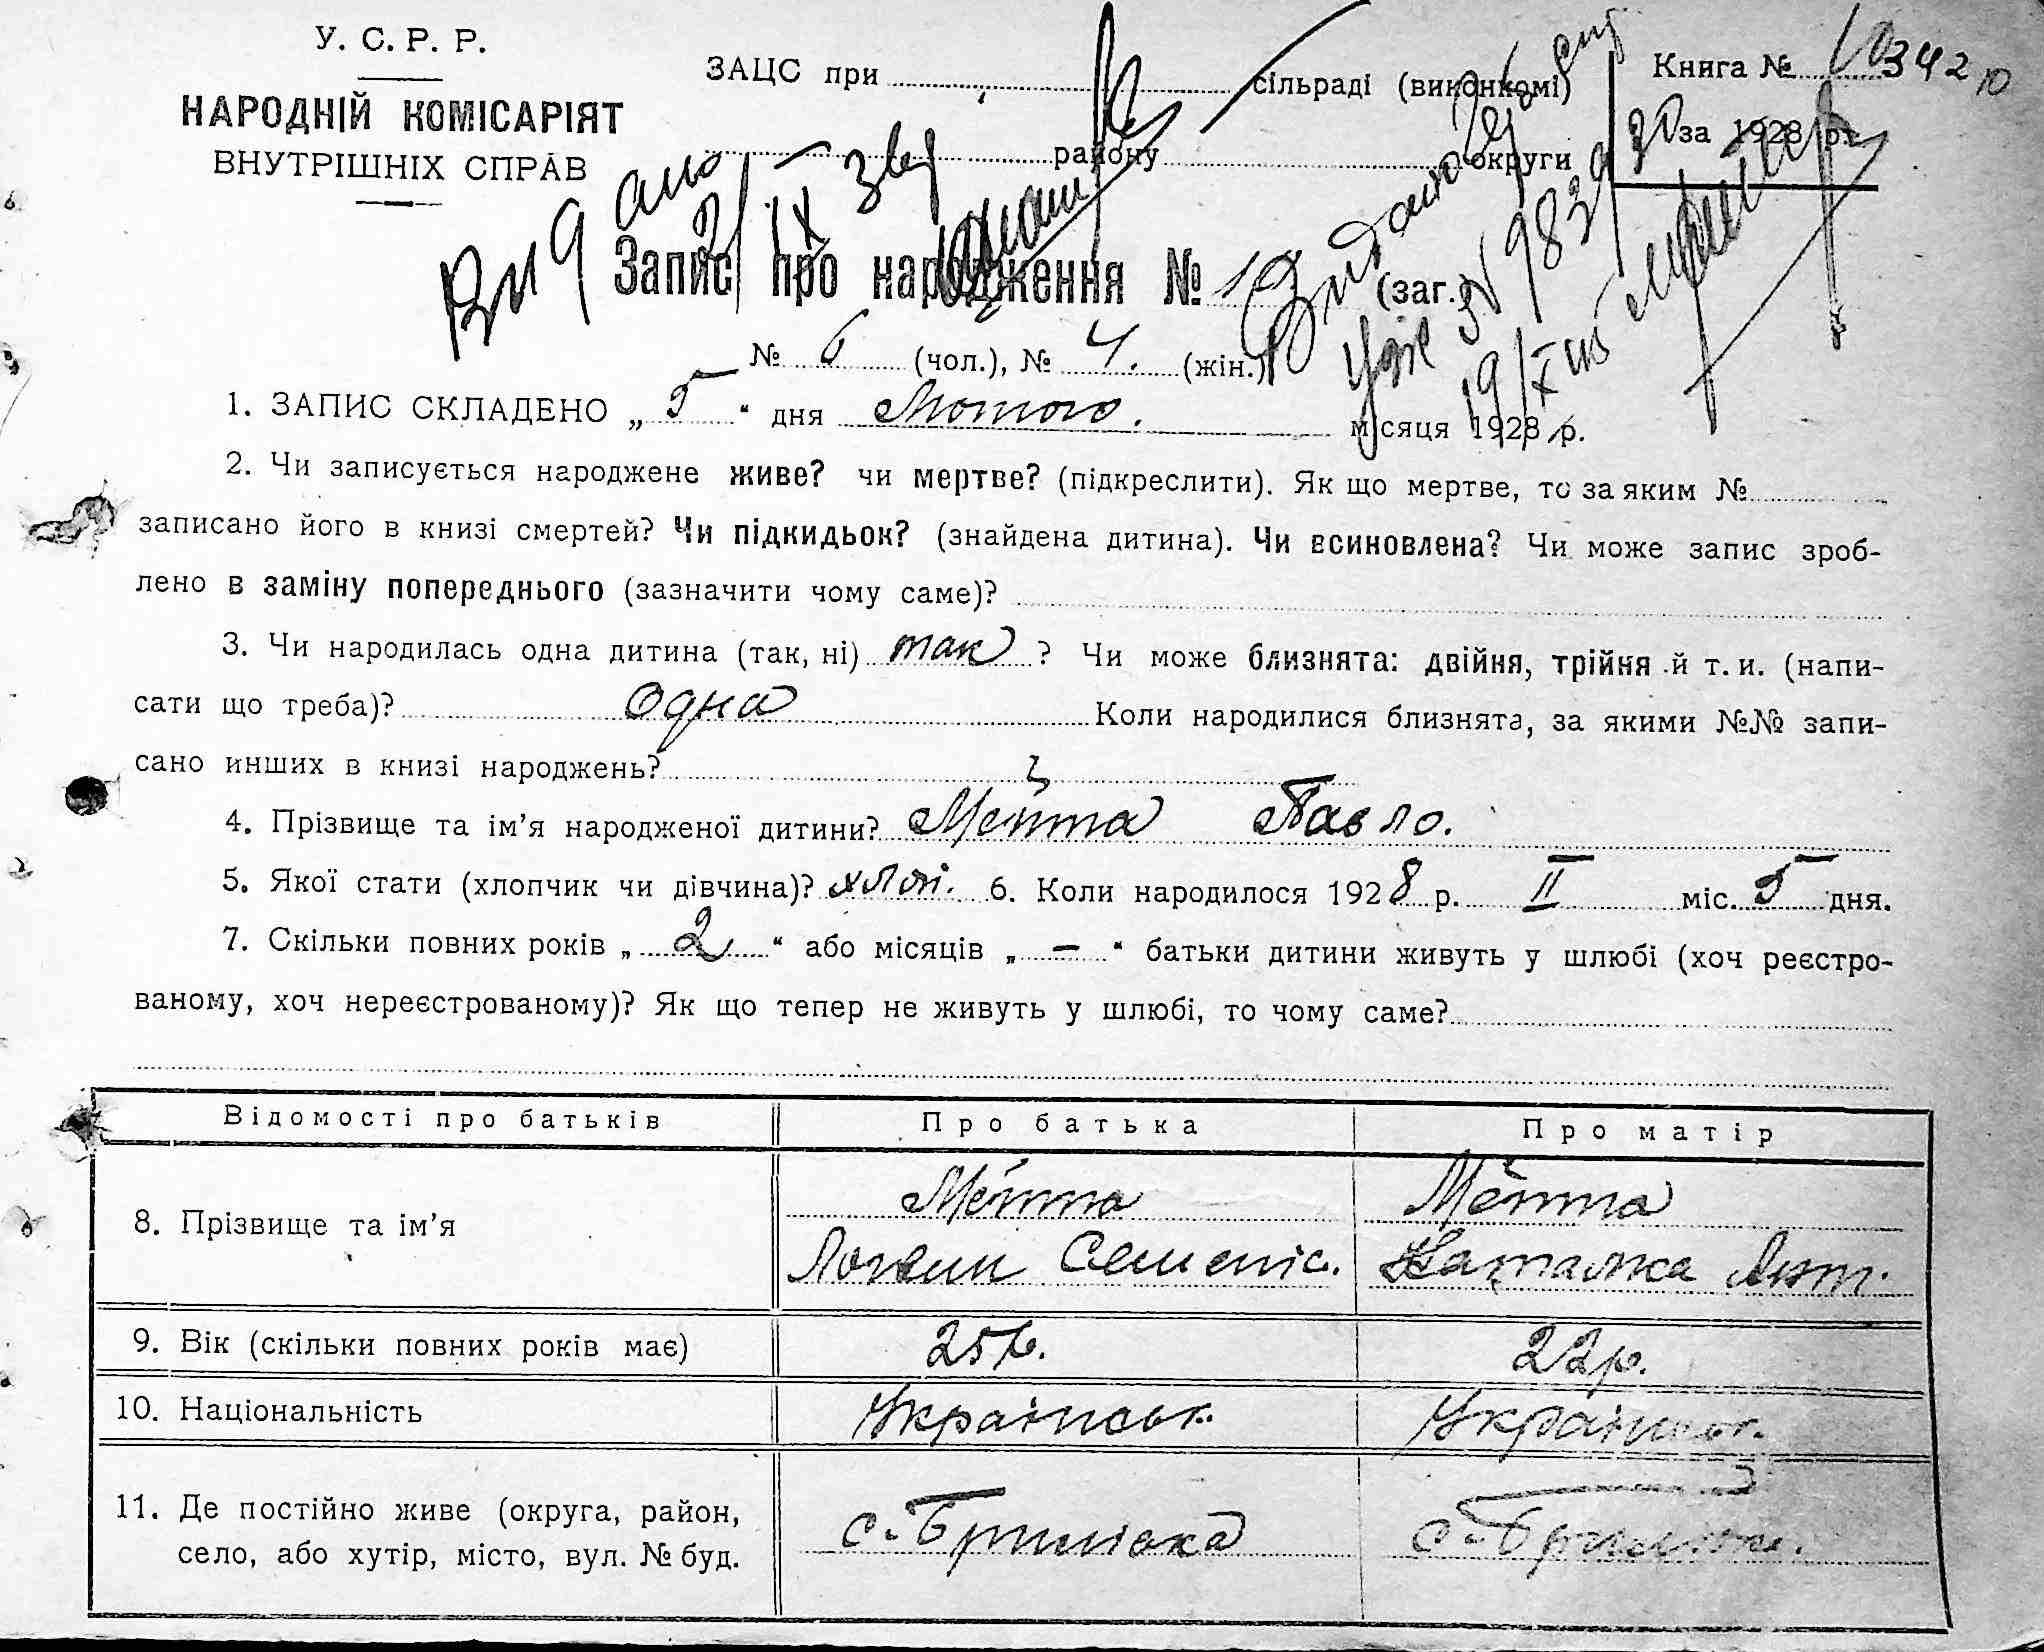 У. С. Р. Р.
НАРОДНІЙ КОМІСАРІЯТ
ВНУТРІШНІХ СПРАВ
ЗАЦС при сільраді (виконкомі)
району округи
Книга № 342 10
за 1928 р.
Видано
2/IX
Видано
19/XII
Запис про народження № 10 (заг.)
№ 6 (чол.), № 4. (жін.)
1. ЗАПИС СКЛАДЕНО „ 5 “ дня Лютого. місяця 1928 р.
2. Чи записується народжене живе? чи мертве? (підкреслити). Як що мертве, то за яким №
записано його в книзі смертей? Чи підкидьок? (знайдена дитина). Чи всиновлена? Чи може запис зроб-
лено в заміну попереднього (зазначити чому саме)?
3. Чи народилась одна дитина (так, ні) так ? Чи може близнята: двійня, трійня й т. и. (напи-
сати що треба)? одна Коли народилися близнята, за якими №№ запи-
сано инших в книзі народжень?
4. Прізвище та ім’я народженої дитини? Мейта Павло.
5. Якої стати (хлопчик чи дівчина)? хлоп. 6. Коли народилося 1928 р. II міс. 5 дня.
7. Скільки повних років „ 2 “ або місяців „ — “ батьки дитини живуть у шлюбі (хоч реєстро-
ваному, хоч нереєстрованому)? Як що тепер не живуть у шлюбі, то чому саме?
Відомості про батьків Про батька Про матір
8. Прізвище та ім’я Мейта Мейта
Логвин Семенів. Наталка Ант.
9. Вік (скільки повних років має) 25 р. 22 р.
10. Національність Українськ. Українськ.
11. Де постійно живе (округа, район,
село, або хутір, місто, вул. № буд. с. Брилівка с.